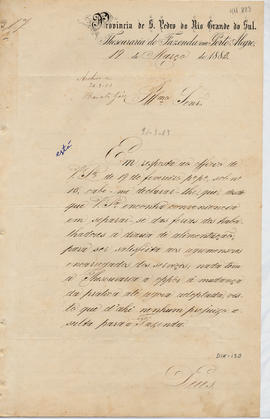 Provincia de S. Pedro do Rio Grande do Sul.
Thesouraria de Fazenda em Porto Alegre,
17 de Março de 1882.
Illmo Senr.
Em resposta ao officio de
V. Sª de 19 de fevereiro p. pº, sob nº
10, cabe-me declarar-lhe que, desde
que V. Sª encontra conveniencia
em separar-se das ferias dos traba-
lhadores a diaria de alimentação,
para ser satisfeita aos
encarregados dos serviços, nada tem
a Thesouraria a oppôr á mudança
da pratica até agora adoptada, vis-
to que d'ahi nenhum prejuizo re-
sulta para a Fazenda.
Deus